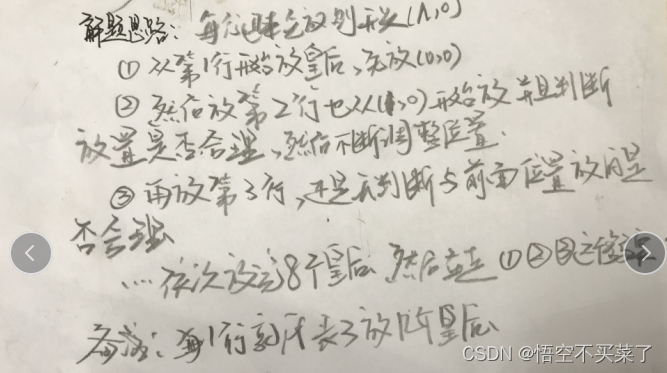 解题思路: 每行
① 从第1行开始放皇后,先放(0,0)
② 然后放第2行也从(1,0)开始放并且判断
放置是否合理,然后不断调整位置.
③ 再放第3行,还是先判断与前面位置放的是
否合理
....依次放完8个皇后 然后 ①②
备注: 每1行就代表了放1个皇后
CSDN @悟空不买菜了